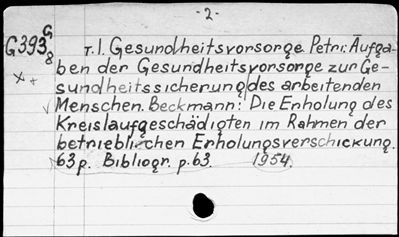 -2-
G393 G8
T.1. Gesundheitsvorsorge. Petri: Aufga-
ben der Gesundheitsvorsorge zur Ge-
sundheitssicherung des arbeitenden
Menschen. Beckmann: Die Erholung des
Kreislaufgeschädigten im Rahmen der
betrieblichen Erholungsverschickung.
63p. Bibliogr. p.63. 1954.